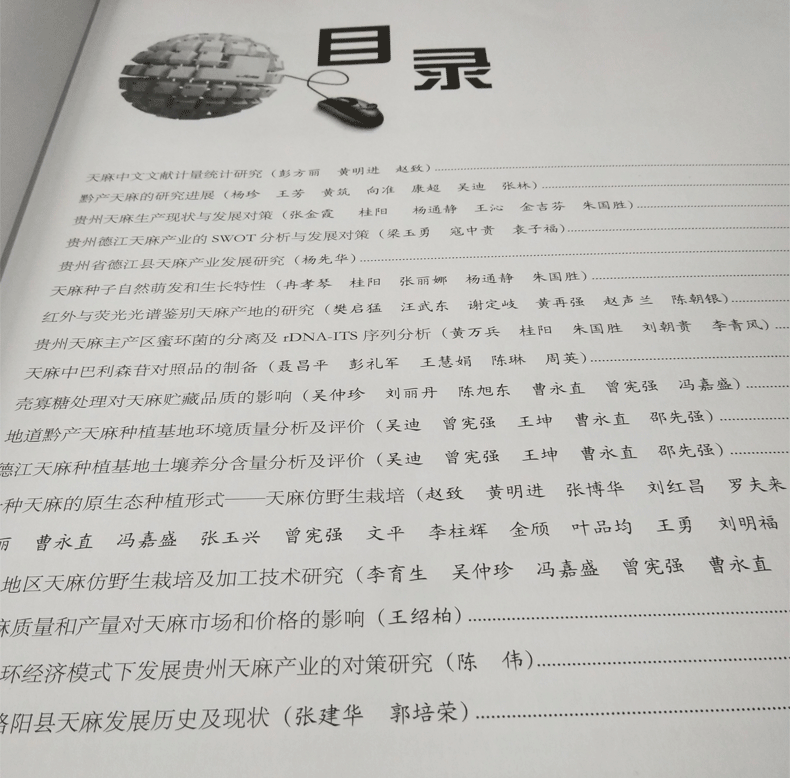 目录
天麻中文文献计量统计研究（彭方丽 黄明进 赵致）
黔产天麻的研究进展（杨珍 王芳 黄筑 向准 康超 吴迪 张林）
贵州天麻生产现状与发展对策（张金霞 桂阳 杨通静 王沁 金吉芬 朱国胜）
贵州德江天麻产业的 SWOT 分析与发展对策（梁玉勇 寇中贵 袁子福）
贵州省德江县天麻产业发展研究（杨先华）
天麻种子自然萌发和生长特性（冉孝琴 桂阳 张丽娜 杨通静 朱国胜）
红外与荧光光谱鉴别天麻产地的研究（樊启猛 汪武东 谢定岐 黄再强 赵声兰 陈朝银）
贵州天麻主产区蜜环菌的分离及 rDNA-ITS 序列分析（黄万兵 桂阳 朱国胜 刘朝贵 李青风）
天麻中巴利森苷对照品的制备（聂昌平 彭礼军 王慧娟 陈琳 周英）
壳寡糖处理对天麻贮藏品质的影响（吴仲珍 刘丽丹 陈旭东 曹永直 曾宪强 冯嘉盛）
地道黔产天麻种植基地环境质量分析及评价（吴迪 曾宪强 王坤 曹永直 邵先强）
德江天麻种植基地土壤养分含量分析及评价（吴迪 曾宪强 王坤 曹永直 邵先强）
种天麻的原生态种植形式——天麻仿野生栽培（赵致 黄明进 张博华 刘红昌 罗夫来
丽 曹永直 冯嘉盛 张玉兴 曾宪强 文平 李柱辉 金颀 叶品均 王勇 刘明福
地区天麻仿野生栽培及加工技术研究（李育生 吴仲珍 冯嘉盛 曾宪强 曹永直
麻质量和产量对天麻市场和价格的影响（王绍柏）
环经济模式下发展贵州天麻产业的对策研究（陈 伟）
略阳县天麻发展历史及现状（张建华 郭培荣）